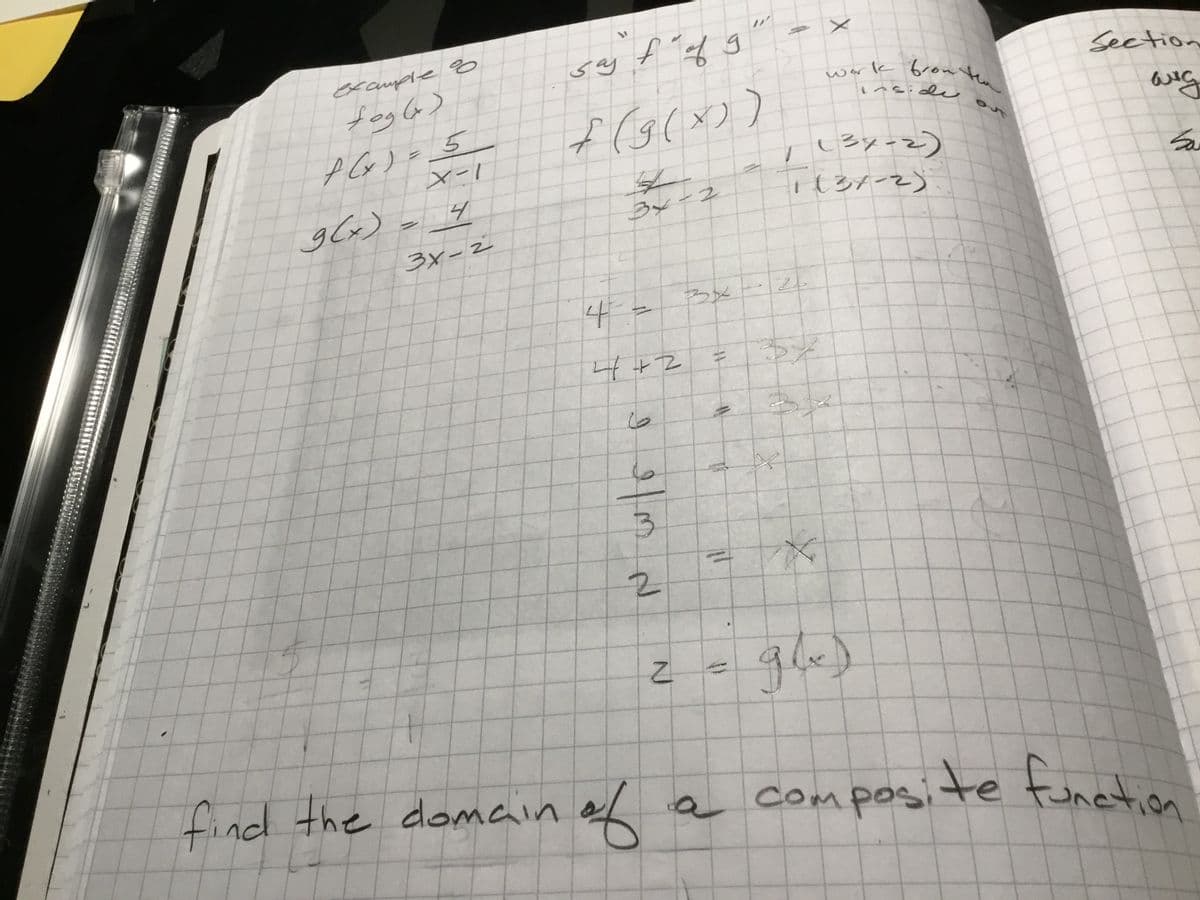 example 8
fog(x)
f(x) = 5/(x-1)
g(x) = 4/(3x-2)
say "f" of g" = x
work from the
inside out
f(g(x))
4/(3x-2) = 1/1 (3x-2)/(3x-2)
4 = 3x - 2
4+2 = 3x
6 = 3x
6/3 = x
2 = x
2 = g(x)
find the domain of a composite function
Section